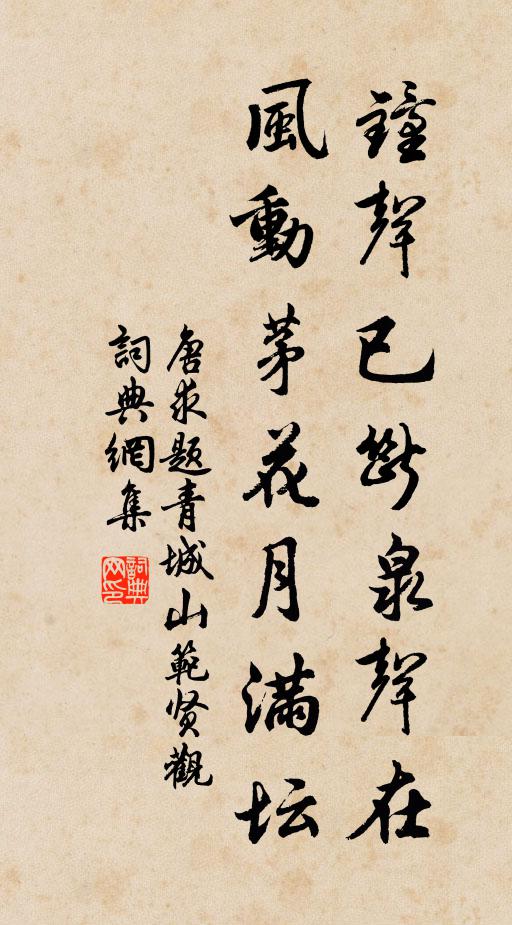 鐘聲已斷泉聲在
風動茅花月滿坛
唐求题青城山範贤觀
詞典網集
詞典网印